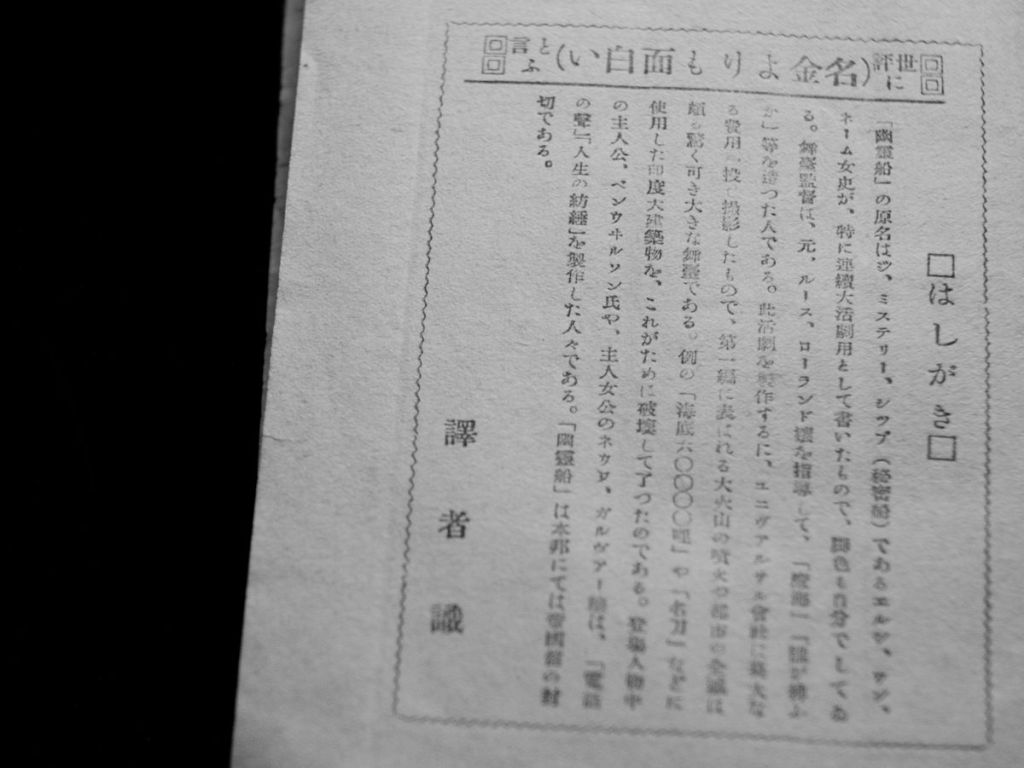 世評に(名金よりも面白い)と言ふ
□はしがき□
「幽靈船」の原名はジ、ミステリー、シツプ(秘密船)であるエルシ、ワン、
ネーム女史が、特に連續大活劇用として書いたもので、脚色も自分でしてゐ
る。舞臺監督は、元、ルース、ローランド孃を指導して、「」「誰が
か」等を造つた人である。此活劇を製作するに、ユニヴアサル會社は莫大な
る費用を投じ撮影したもので、第一編に表はれる大火山の噴火や都市の全滅は
頗る驚く可き大きな舞臺である。例の「海底六〇〇〇〇哩」や「名刀」などに
使用した印度大建築物を、これがために破壞して了つたのである。登場人物中
の主人公、ベンウヰルソン氏や、主人女公のネヴワ、ガルヴアー孃は、「電話
の聲」「人生の紡縺」を製作した人々である。「幽靈船」は本邦にては帝國館の封
切である。
譯者識